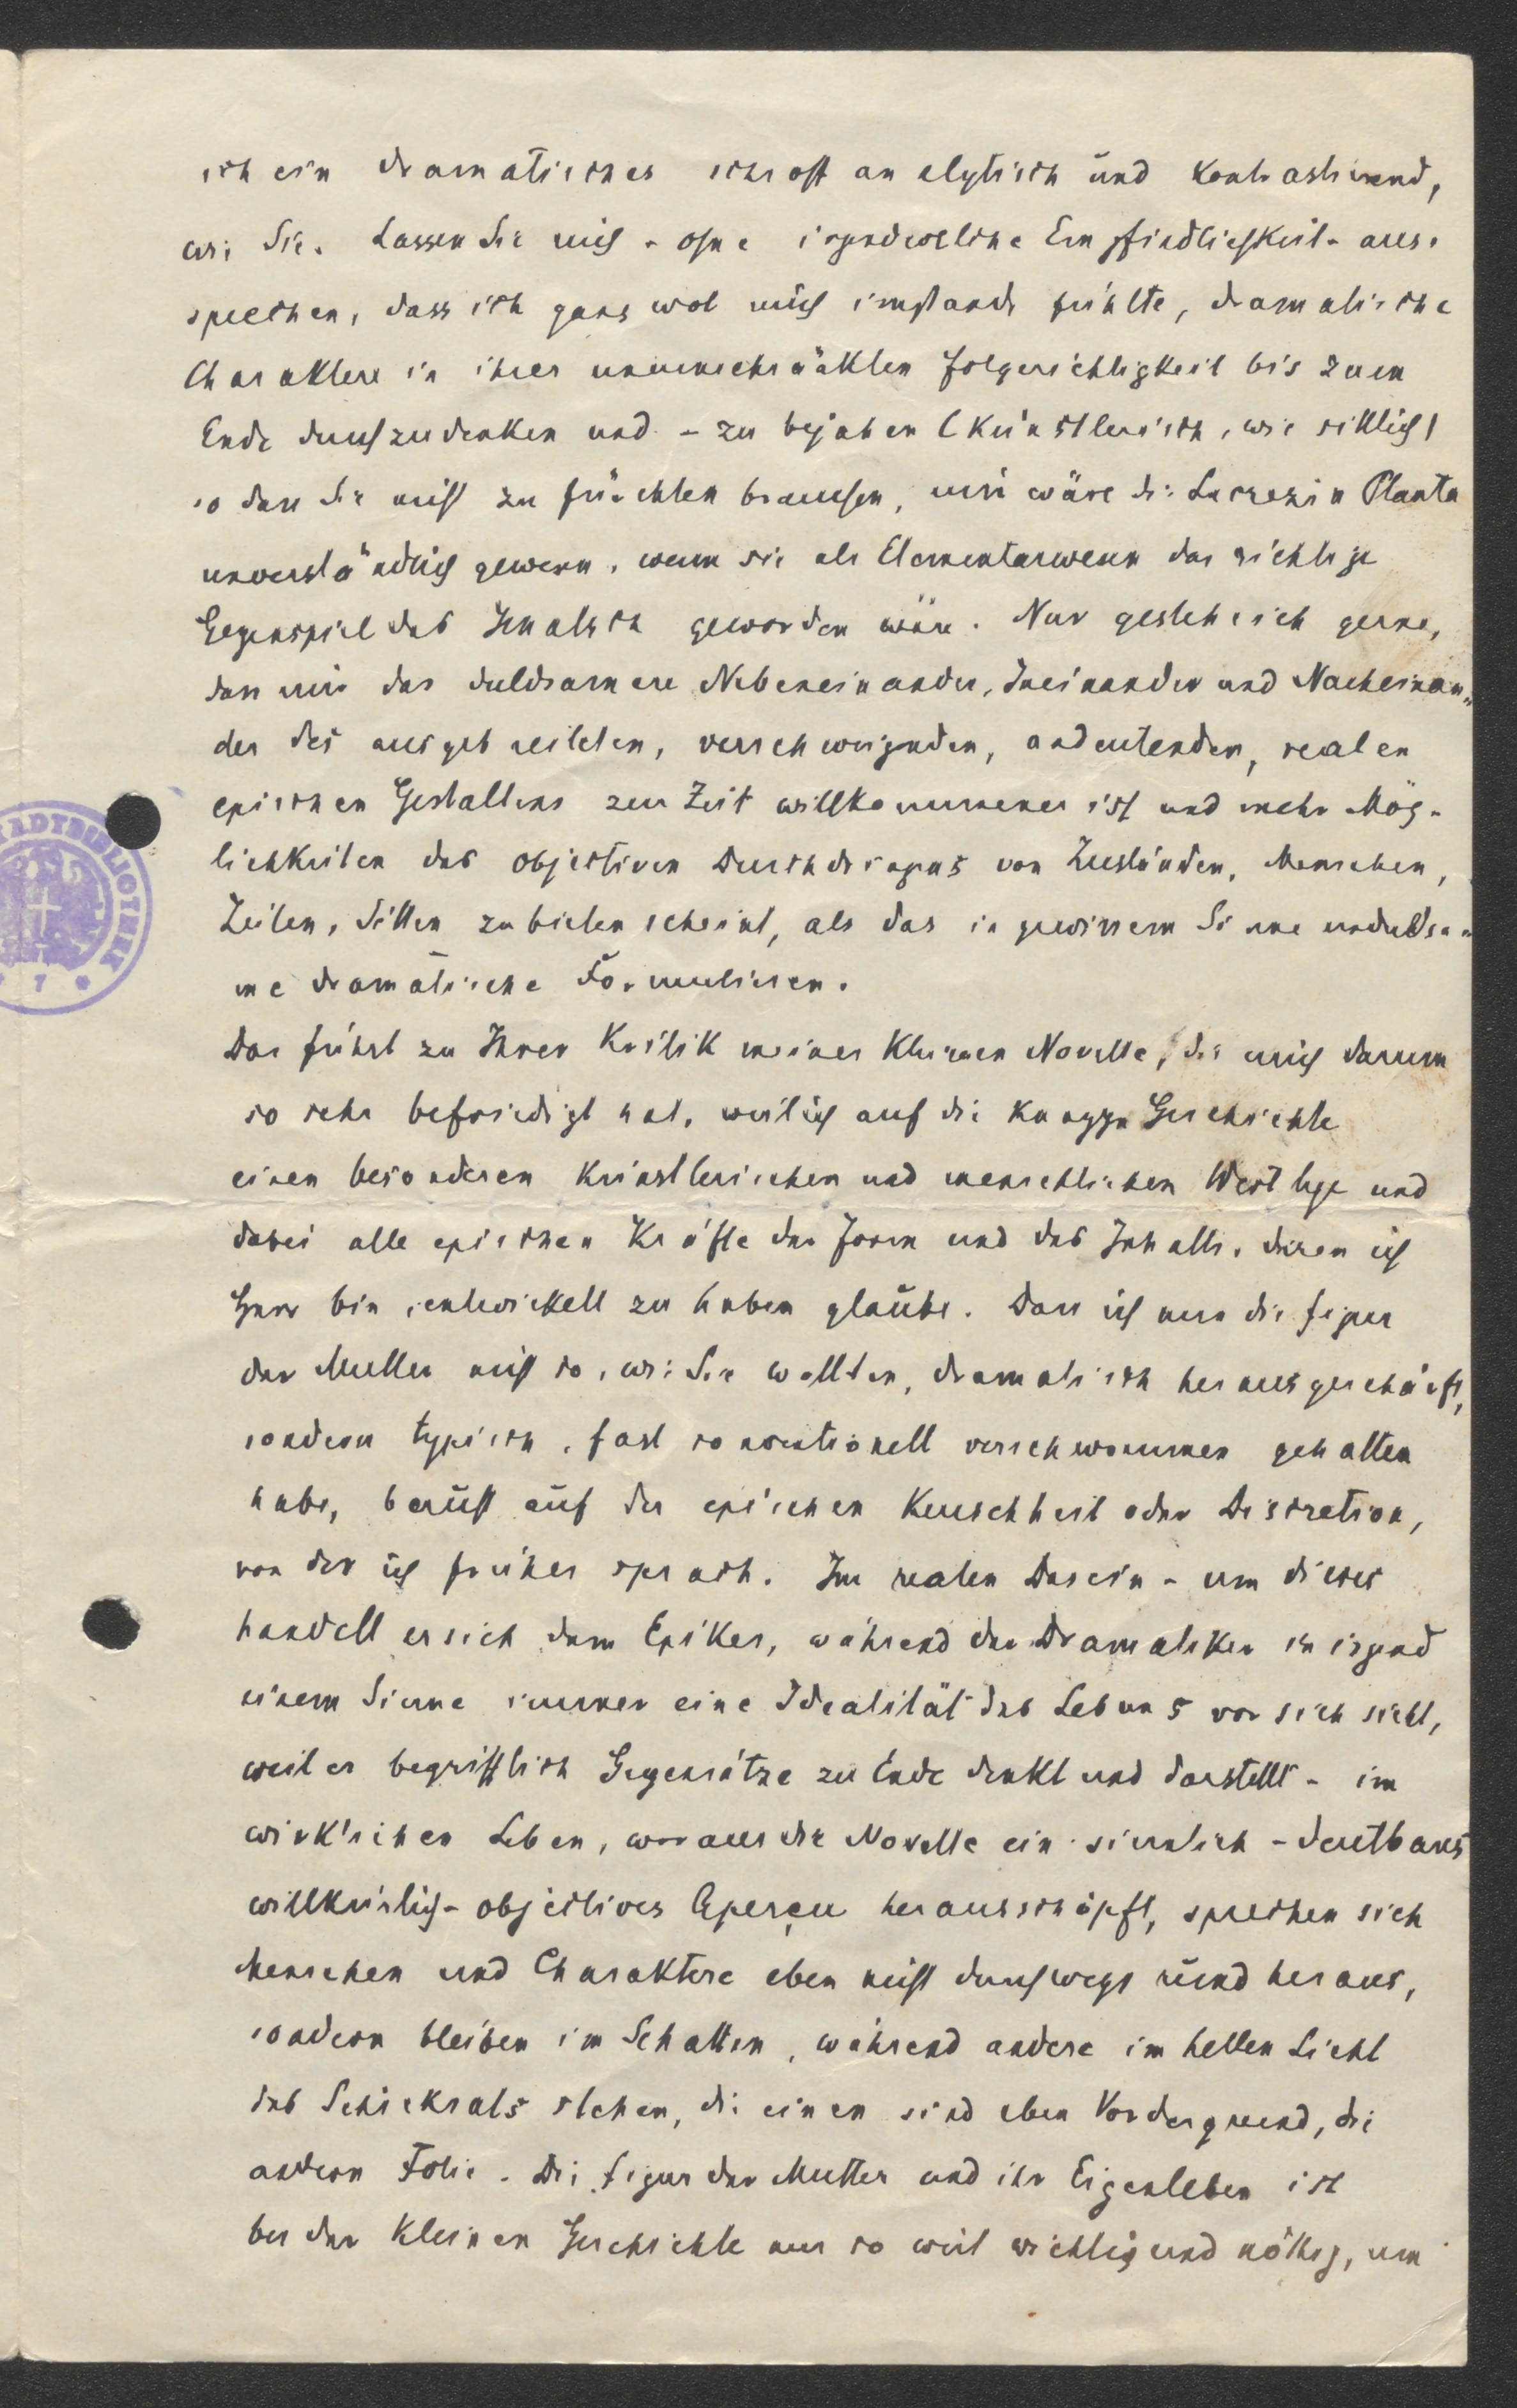 ich ein dramatisches schroff analytisch und kontrastirend,
wie Sie. Lassen Sie mich - ohne irgendwelche Empfindlichkeit - aus-
sprechen, dass ich ganz wol mich imstande fühlte, dramatische
Charaktere in ihrer uneinschränkten Folgerichtigkeit bis zum
Ende durchzudenken und - zu bejahen (künstlerisch, wie sittlich)
so dass Sie nicht zu fürchten brauchen, mir wäre die Lucrezia Planta
unverständlich gewesen, wenn sie als Elementarwesen das richtige
Gegenspiel des Jenatsch geworden wäre. Nur gestehe ich gerne,
dass mir das duldsamere Nebeneinander, Ineinander und Nacheinan-
der des ausgebreiteten, verschweigenden, andeutenden, realen
epischen Gestaltens zur Zeit willkommener ist und mehr Mög-
lichkeiten des objectiven Durchdringens von Zuständen, Menschen,
Zeiten, Sitten zu bieten scheint, als das in gewissem Sinne unduldsa-
me dramatische Formulieren.
Das führt zu Ihrer Kritik meiner kleinen Novelle, die mich darum
so sehr befriedigt hat, weil ich auf die knappe Geschichte
einen besonderen künstlerischen und menschlichen Wert lege und
dabei alle epischen Kräfte der Form und des Inhalts, deren ich
Herr bin, entwickelt zu haben glaube. Dass ich nun die Figur
der Mutter nicht so, wie Sie wollten, dramatisch herausgeschärft,
sondern typisch, fast conventionell verschwommen gehalten
habe, beruht auf der epischen Keuschheit oder Discretion,
von der ich früher sprach. Im realen Dasein - um dieses
handelt es sich dem Epiker, während der Dramatiker in irgend
einem Sinne immer eine Idealität des Lebens vor sich sieht,
weil er begrifflich Gegensätze zu Ende denkt und darstellt - im
wirklichen Leben, woraus die Novelle ein sinnlich-deutbares
willkürlich-objectives Aperçu herausschöpft, sprechen sich
Menschen und Charaktere eben nicht durchwegs rund heraus,
sondern bleiben im Schatten, während andere im hellen Licht
des Schicksals stehen, die einen sind eben Vordergrund, die
andern Folie. Die Figur der Mutter und ihr Eigenleben ist
bei der kleinen Geschichte nur so weit wichtig und nöthig, um